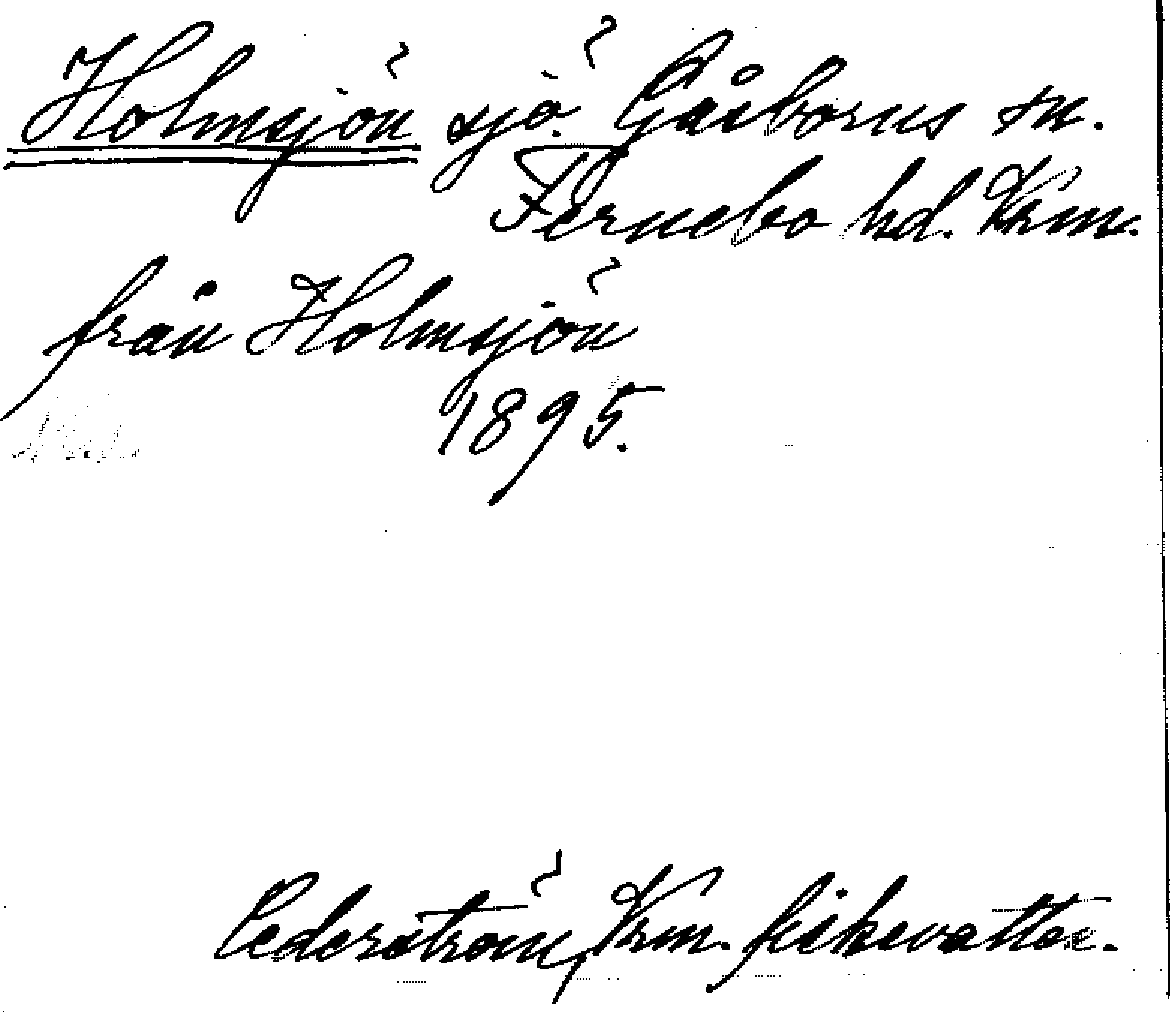 Holmsjön sjö. Gåsborns sn.
Fernebo hd. Vrm.
från Holmsjön
1895.
Cederström, Vrm. fiskevatten.